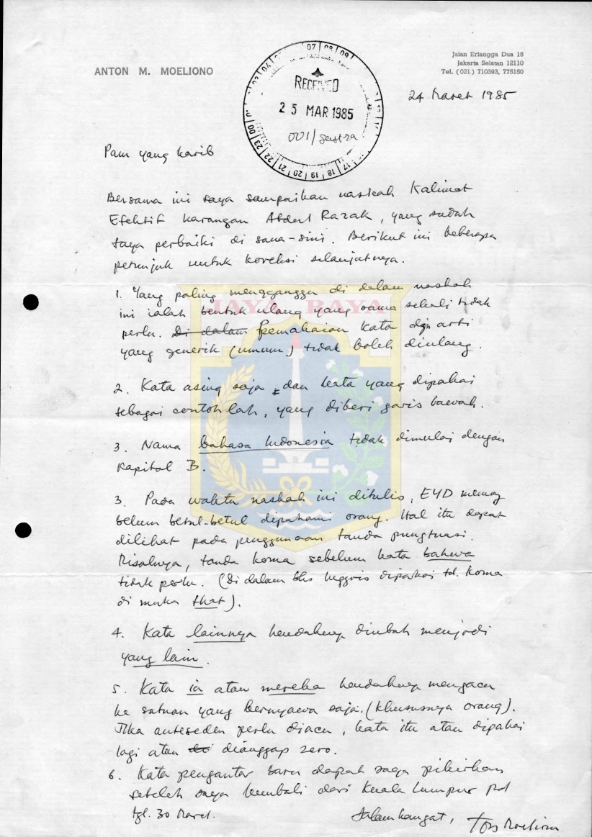 ANTON M. MOELIONO
Jalan Erlangga Dua 18
Jakarta Selatan 12110
Tel. (021) 710393, 775160
24 Maret 1985
RECEIVED
25 MAR 1985
001/sastra
Pam yang karib
Bersama ini saya sampaikan naskah Kalimat
Efektif karangan Abdul Razak, yang sudah
saya perbaiki di sana-sini. Berikut ini beberapa
petunjuk untuk koreksi selanjutnya.
JAYA RAYA
1. Yang paling mengganggu di dalam naskah
ini ialah bentuk ulang yang sama sekali tidak
perlu. Di dalam Pemakaian kata dgn arti
yang generik (umum) tidak boleh diulang.
2. Kata asing saja, dan kata yang dipakai
sebagai contohlah, yang diberi garis bawah.
3. Nama bahasa Indonesia tidak dimulai dengan
kapital B.
3. Pada waktu naskah ini ditulis, EYD memang
belum betul-betul dipahami orang. Hal itu dapat
dilihat pada penggunaan tanda pungtuasi.
Misalnya, tanda koma sebelum kata bahwa
tidak perlu. (Di dalam bhs Inggris dipakai td. koma
di muka that).
4. Kata lainnya hendaknya diubah menjadi
yang lain.
5. Kata ia atau mereka hendaknya mengacu
ke satuan yang bernyawa saja. (khususnya orang).
Jika anteseden perlu diacu, kata itu atau dipakai
lagi atau dianggap zero.
6. Kata pengantar baru dapat saya pikirkan
setelah saya kembali dari Kuala Lumpur pd
tgl. 30 Maret.
Salam hangat,
Ton Moeliono